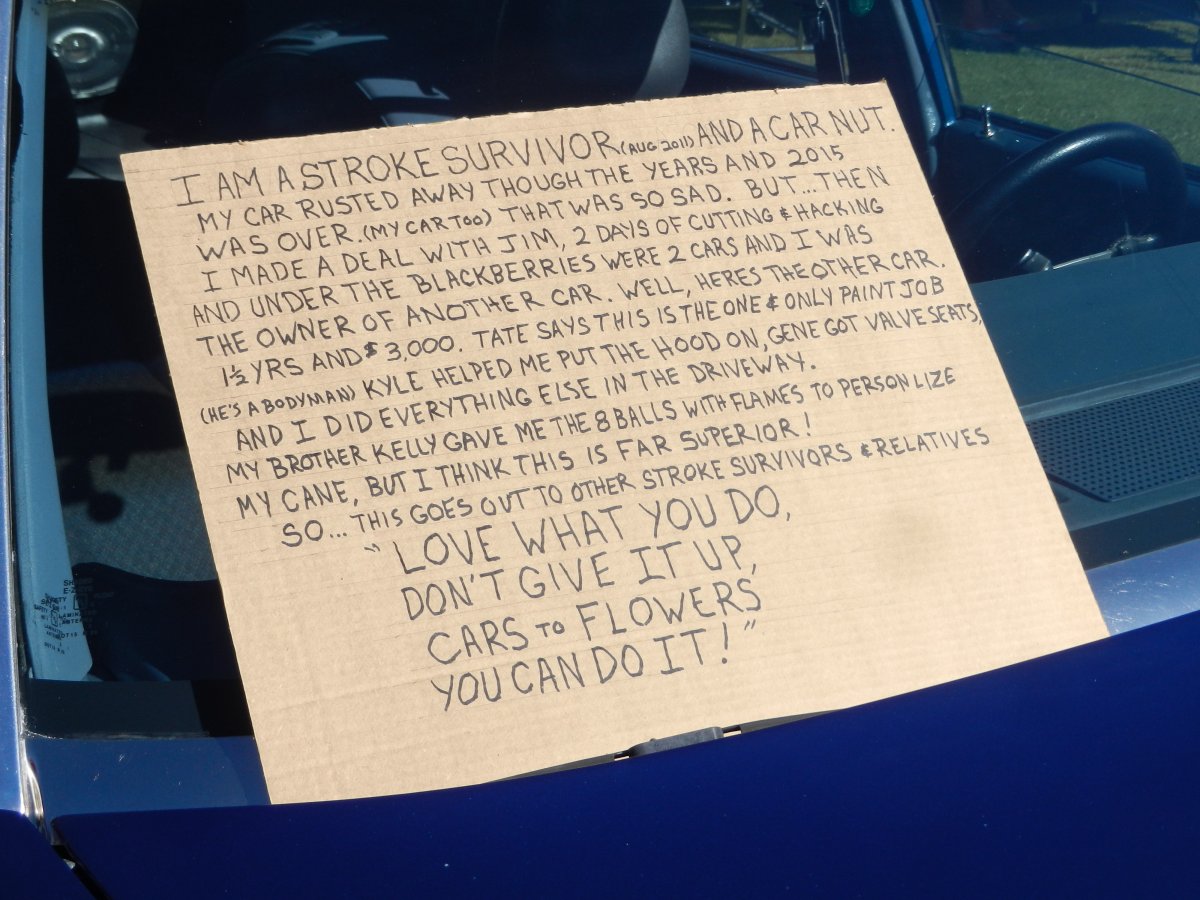 I AM A STROKE SURVIVOR (AUG 2011) AND A CAR NUT.
MY CAR RUSTED AWAY THOUGH THE YEARS AND 2015
WAS OVER. (MY CAR TOO) THAT WAS SO SAD. BUT... THEN
I MADE A DEAL WITH JIM, 2 DAYS OF CUTTING & HACKING
AND UNDER THE BLACKBERRIES WERE 2 CARS AND I WAS
THE OWNER OF ANOTHER CAR. WELL, HERES THE OTHER CAR.
1½ YRS AND $3,000. TATE SAYS THIS IS THE ONE & ONLY PAINT JOB
(HE'S A BODYMAN) KYLE HELPED ME PUT THE HOOD ON, GENE GOT VALVE SEATS,
AND I DID EVERYTHING ELSE IN THE DRIVEWAY.
MY BROTHER KELLY GAVE ME THE 8 BALLS WITH FLAMES TO PERSONLIZE
MY CANE, BUT I THINK THIS IS FAR SUPERIOR!
SO... THIS GOES OUT TO OTHER STROKE SURVIVORS & RELATIVES
"LOVE WHAT YOU DO,
DON'T GIVE IT UP,
CARS TO FLOWERS
YOU CAN DO IT!"